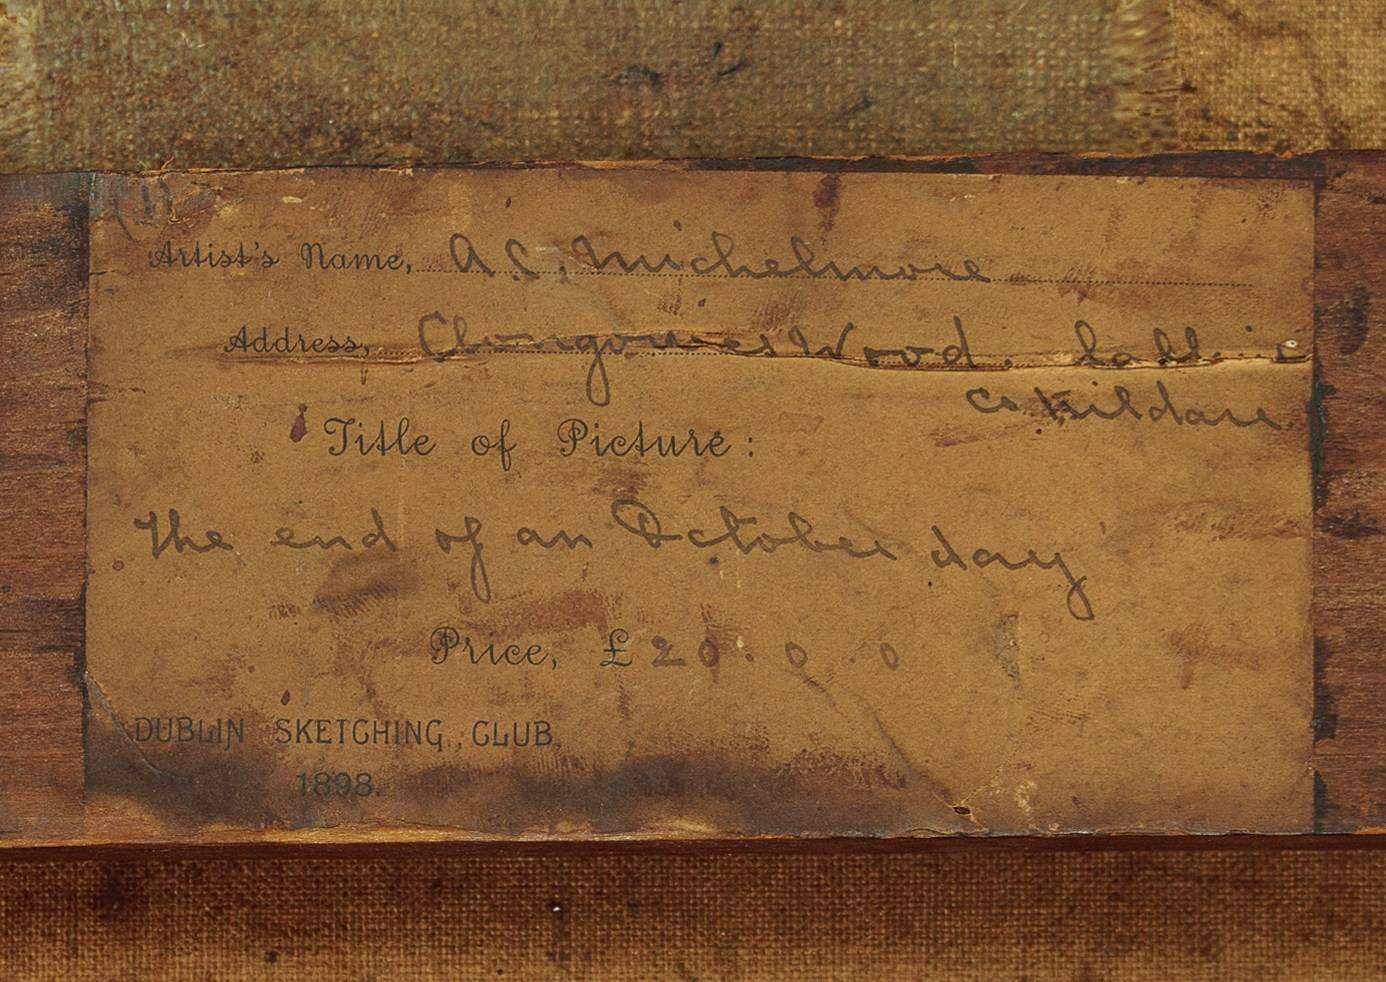 (1)
Artist's Name, A. C. Michelmore
Address, Clongowes Wood.
Co Kildare
Title of Picture:
The end of an October day
Price, £20.0.0
DUBLIN SKETCHING CLUB,
1898.